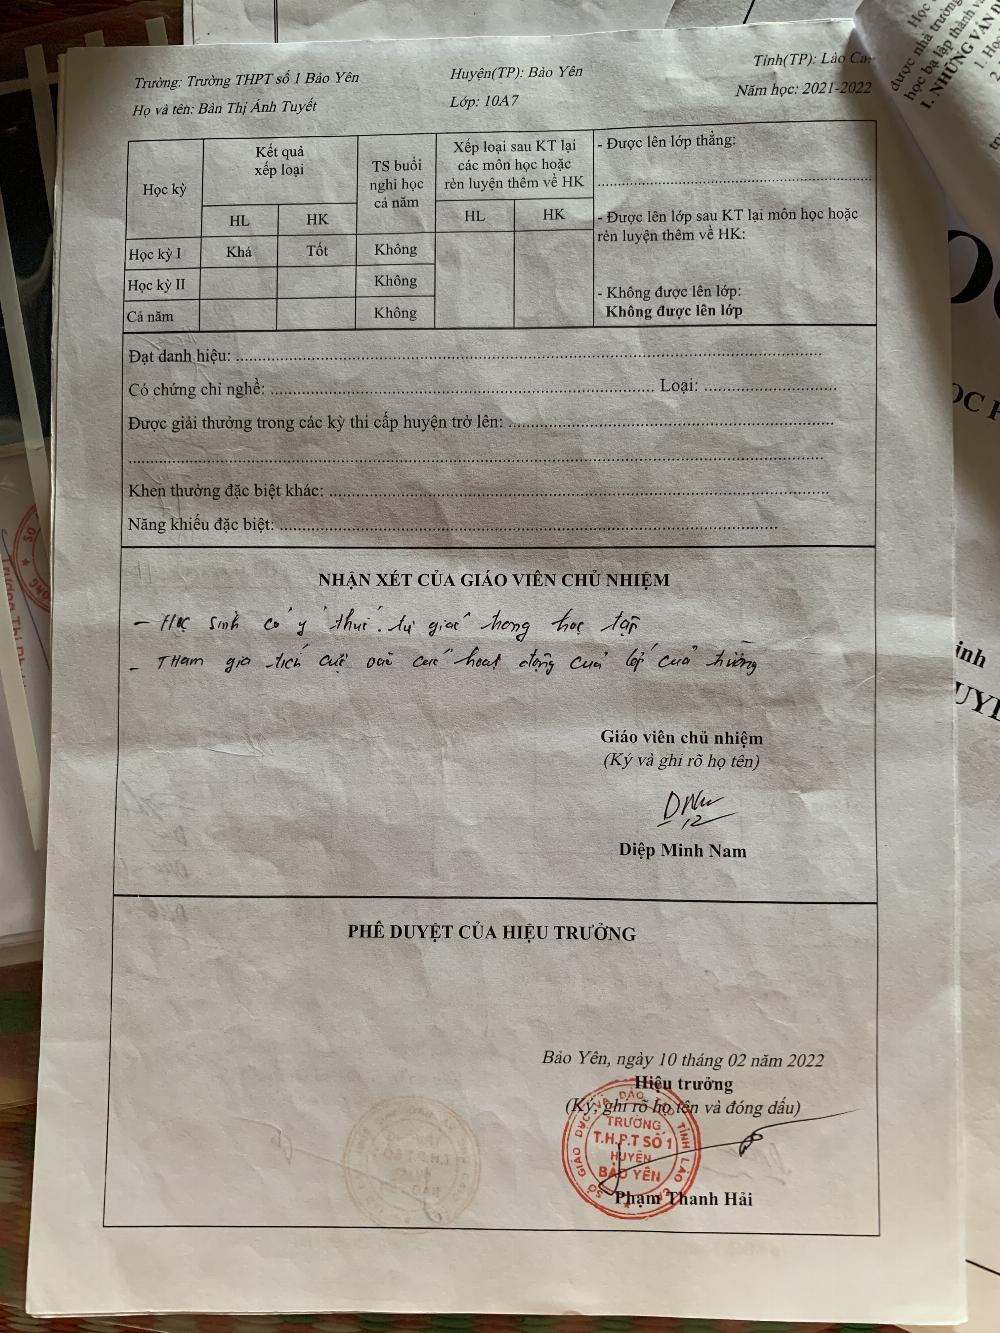 Trường: Trường THPT số 1 Bảo Yên
Huyện(TP): Bảo Yên
Tỉnh(TP): Lào Ca
Họ và tên: Bàn Thị Ánh Tuyết
Lớp: 10A7
Năm học: 2021-2022
Học kỳ
Kết quả
xếp loại
TS buổi
nghỉ học
cả năm
Xếp loại sau KT lại
các môn học hoặc
rèn luyện thêm về HK
HL
HK
HL
HK
Học kỳ I
Khá
Tốt
Không
Học kỳ II
Không
Cả năm
Không
- Được lên lớp thẳng:
- Được lên lớp sau KT lại môn học hoặc
rèn luyện thêm về HK:
- Không được lên lớp:
Không được lên lớp
Đạt danh hiệu:
Có chứng chỉ nghề: Loại:
Được giải thưởng trong các kỳ thi cấp huyện trở lên:
Khen thưởng đặc biệt khác:
Năng khiếu đặc biệt:
NHẬN XÉT CỦA GIÁO VIÊN CHỦ NHIỆM
- Học sinh có ý thức tự giác trong học tập
- Tham gia tích cực vào các hoạt động của lớp của trường
Giáo viên chủ nhiệm
(Ký và ghi rõ họ tên)
Diệp Minh Nam
PHÊ DUYỆT CỦA HIỆU TRƯỞNG
Bảo Yên, ngày 10 tháng 02 năm 2022
Hiệu trưởng
(Ký, ghi rõ họ tên và đóng dấu)
SỞ GIÁO DỤC VÀ ĐÀO TẠO TỈNH LÀO CAI
TRƯỜNG
T.H.P.T SỐ 1
HUYỆN
BẢO YÊN
Phạm Thanh Hải
được nhà trường
học bạ lập thành
1. NHỮNG VẤN